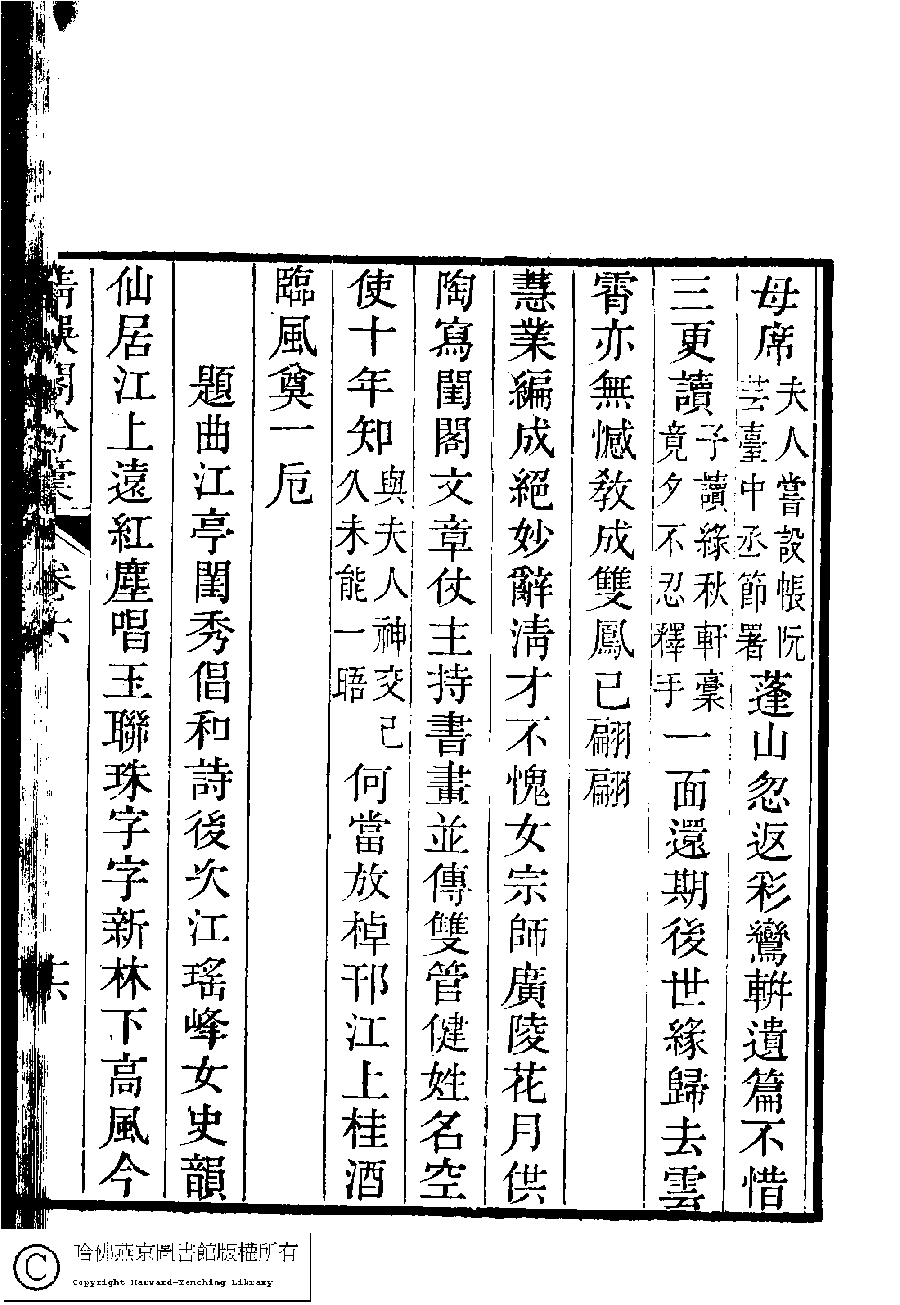 母席夫人嘗設帳阮芸臺中丞節署蓬山忽返彩鸞軿遺篇不惜
三更讀子讀綠秋軒稾竟夕不忍釋手一面還期後世緣歸去雲
霄亦無憾教成雙鳳已翩翩
慧業編成絕妙辭淸才不愧女宗師廣陵花月供
陶寫閨閣文章仗主持書畫並傳雙管健姓名空
使十年知與夫人神交已久未能一晤何當放棹邗江上桂酒
臨風奠一卮
題曲江亭閨秀倡和詩後次江瑤峰女史韻
仙居江上遠紅塵唱玉聯珠字字新林下高風今
卷六
六
哈佛燕京圖書館版權所有
Copyright Harvard-Yenching Library